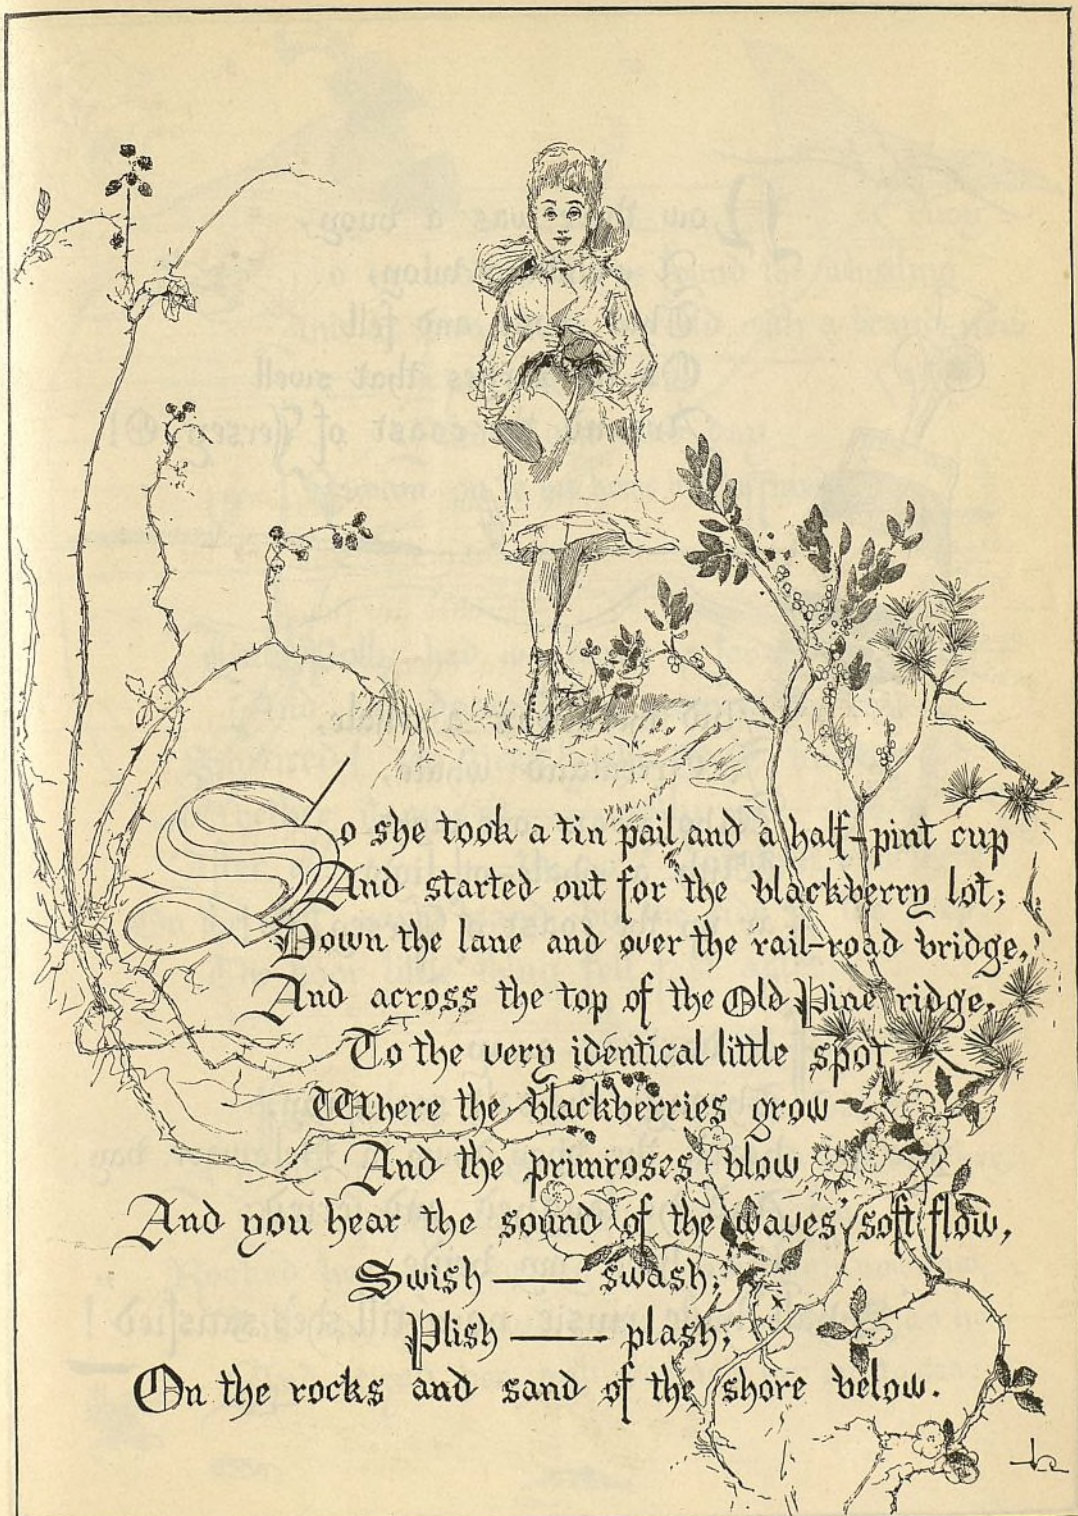 So she took a tin pail and a half-pint cup
And started out for the blackberry lot;
Down the lane and over the rail-road bridge,
And across the top of the Old Pine ridge,
To the very identical little spot
Where the blackberries grow
And the primroses blow
And you hear the sound of the waves' soft flow,
Swish — swash;
Plish — plash;
On the rocks and sand of the shore below.